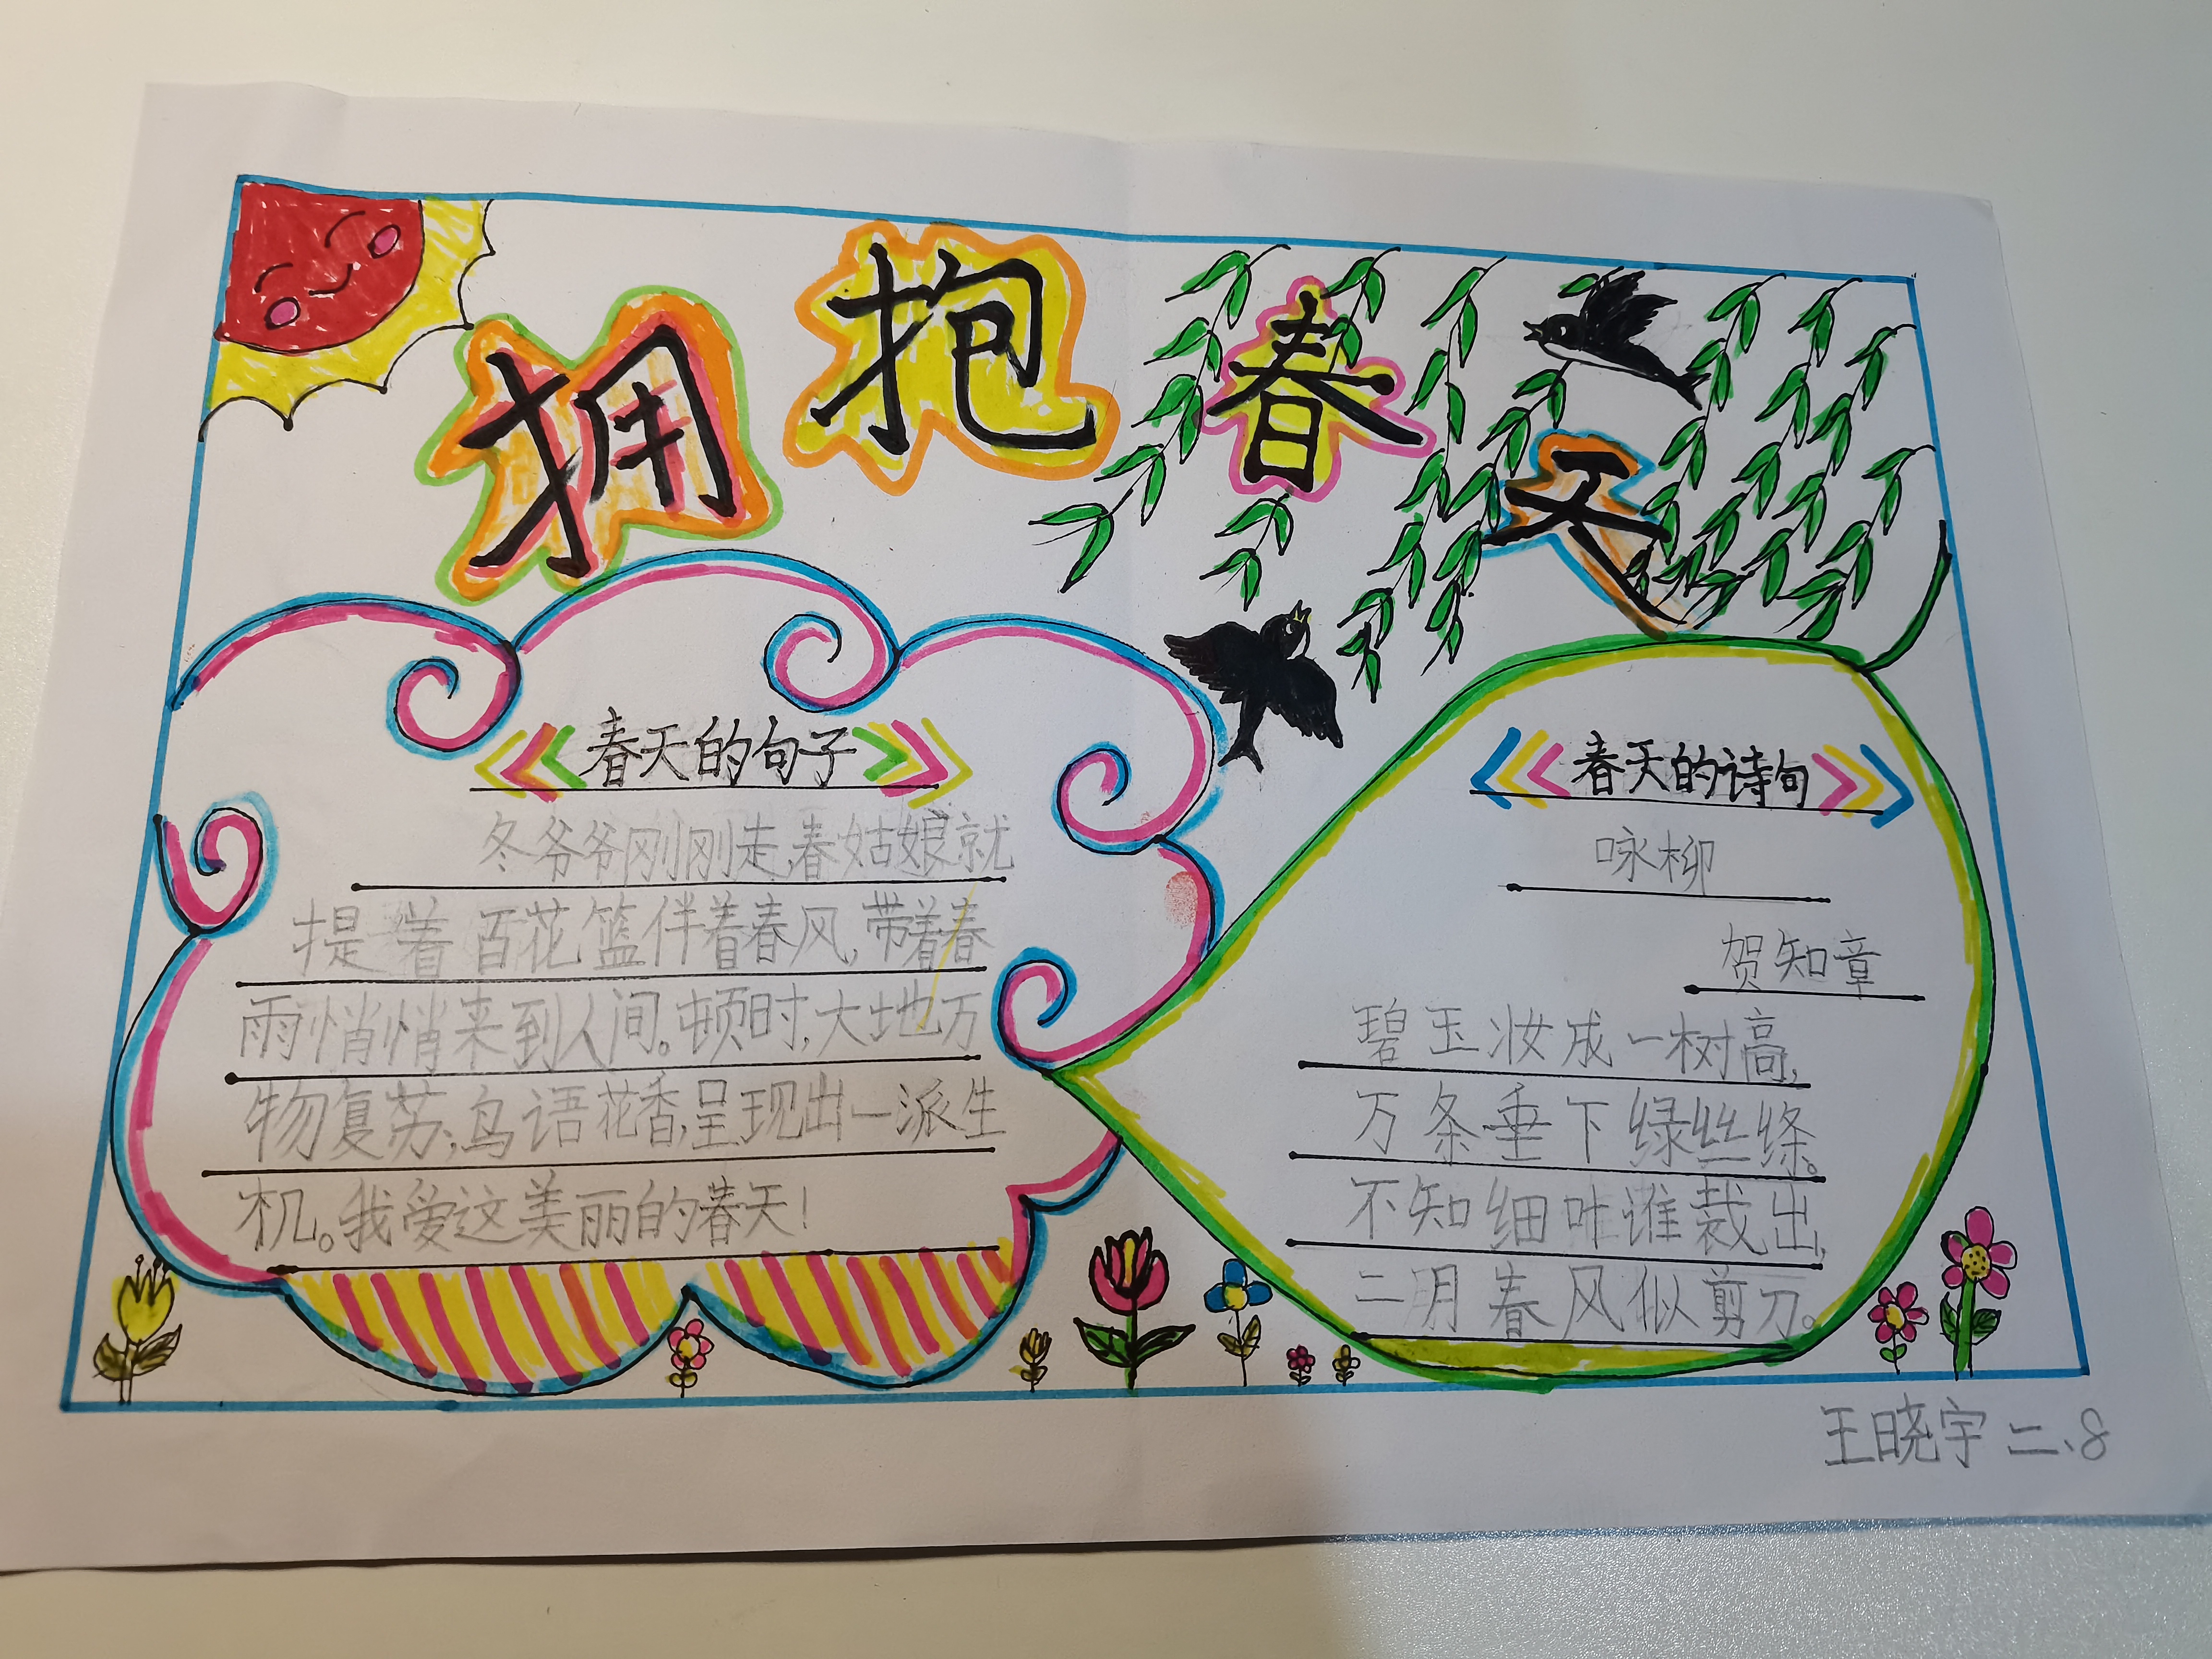 拥抱春天
春天的句子
冬爷爷刚刚走,春姑娘就
提着百花篮伴着春风,带着春
雨悄悄来到人间。顿时,大地万
物复苏,鸟语花香,呈现出一派生
机。我爱这美丽的春天!
春天的诗句
咏柳
贺知章
碧玉妆成一树高,
万条垂下绿丝绦。
不知细叶谁裁出,
二月春风似剪刀。
王晓宇 二、8